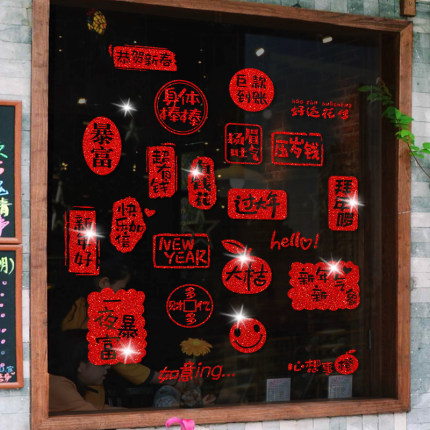 恭贺新春
身体
棒棒
巨款
到账
好运花生
暴富
超有钱
有钱花
扬眉
吐气
压岁钱
过大年
拜年啦
新年好
快乐加倍
NEW
YEAR
大桔
hello!
新年
新
一夜暴富
多
财
多
如意ing...
心想事